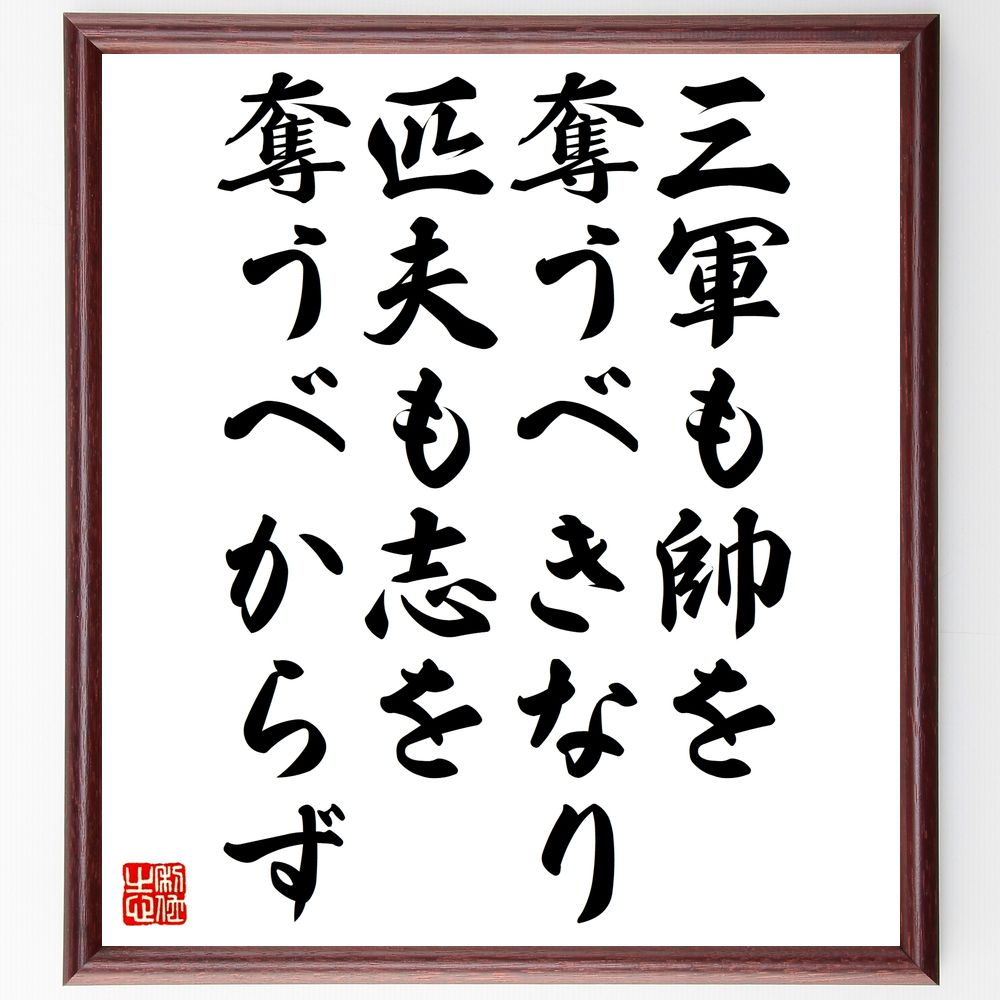 三軍も帥を
奪うべきなり
匹夫も志を
奪うべからず